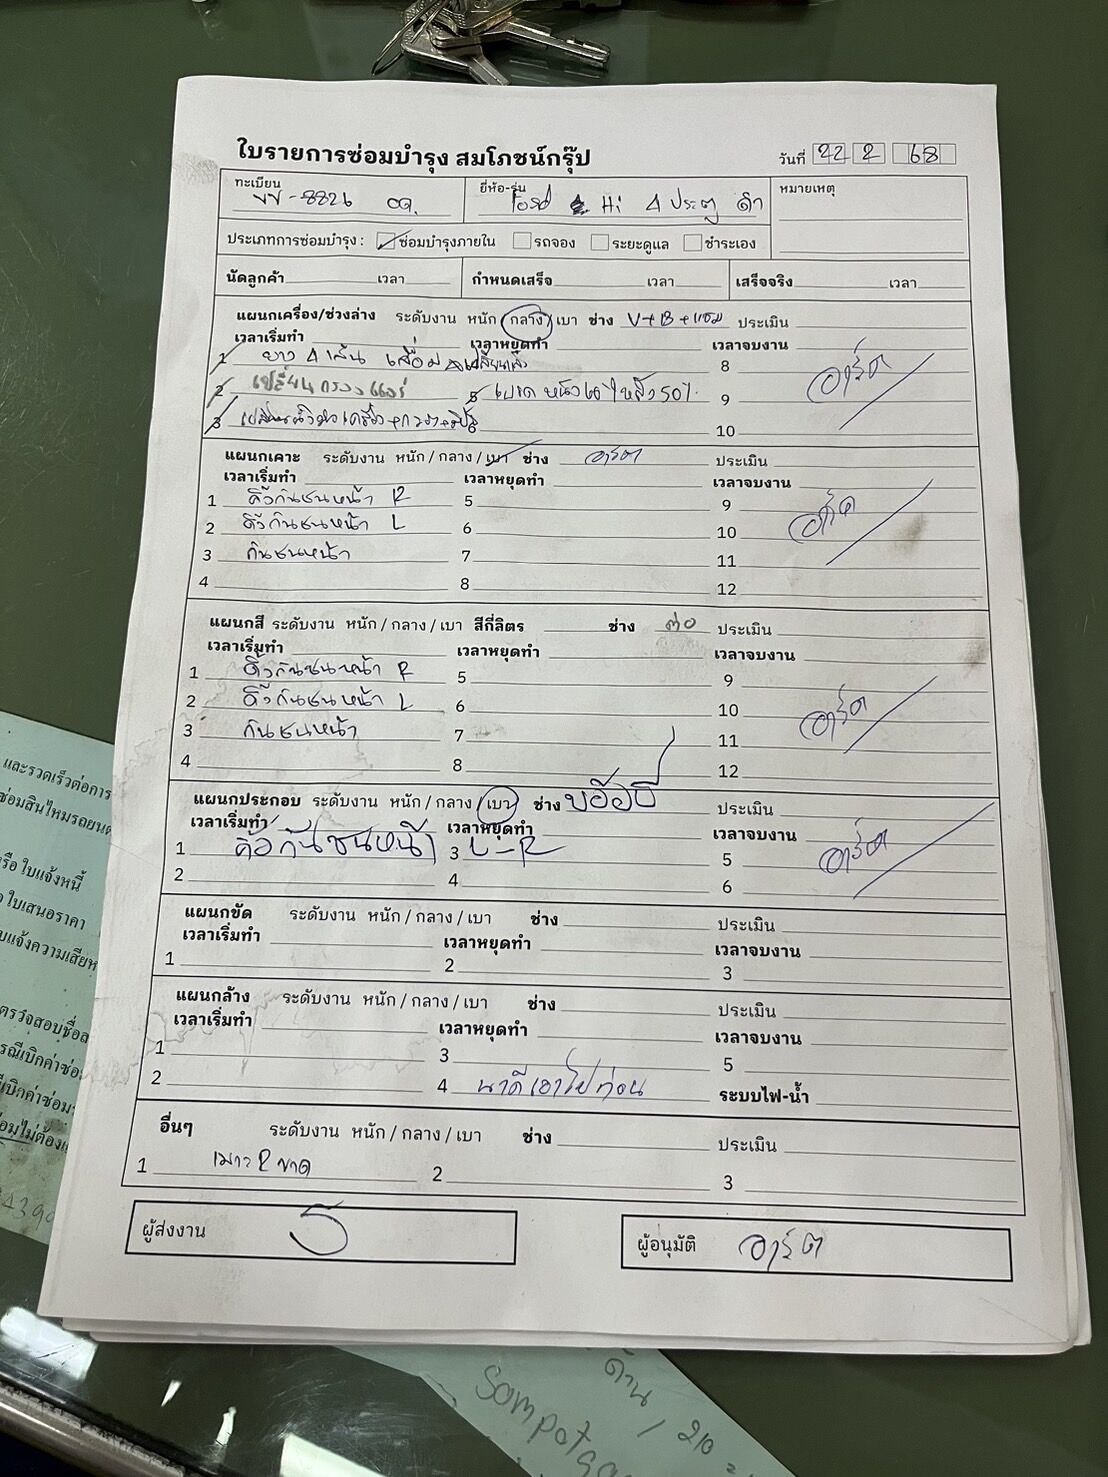 ใบรายการซ่อมบำรุง สมโภชน์กรุ๊ป
วันที่ 22 2 68
ทะเบียน ขข-8826 อด.
ยี่ห้อ-รุ่น Ford Hi 4 ประตู ดำ
หมายเหตุ
ประเภทการซ่อมบำรุง : ซ่อมบำรุงภายใน รถจอง ระยะดูแล ชำระเอง
นัดลูกค้า เวลา กำหนดเสร็จ เวลา เสร็จจริง เวลา
แผนกเครื่อง/ช่วงล่าง ระดับงาน หนัก/กลาง/เบา ช่าง V+B+แชม ประเมิน
เวลาเริ่มทำ เวลาหยุดทำ เวลาจบงาน
1 ยาง 4 เส้น เสื่อม เปลี่ยนแล้ว 8 อาร์ต
2 เปลี่ยนกรองแอร์ 5 เบรค หน้า 60% หลัง 50% 9
3 เปลี่ยนน้ำมันเครื่อง+กรอง 10
แผนกเคาะ ระดับงาน หนัก / กลาง / เบา ช่าง อาร์ต ประเมิน
เวลาเริ่มทำ เวลาหยุดทำ เวลาจบงาน
1 คิ้วกันชนหน้า R 5 9
2 คิ้วกันชนหน้า L 6 10 อาร์ต
3 กันชนหน้า 7 11
4 8 12
แผนกสี ระดับงาน หนัก / กลาง / เบา สีกี่ลิตร ช่าง ประเมิน
เวลาเริ่มทำ เวลาหยุดทำ เวลาจบงาน
1 คิ้วกันชนหน้า R 5 9
2 คิ้วกันชนหน้า L 6 10 อาร์ต
3 กันชนหน้า 7 11
4 8 12
แผนกประกอบ ระดับงาน หนัก / กลาง / เบา ช่าง ประเมิน
เวลาเริ่มทำ เวลาหยุดทำ เวลาจบงาน
1 คิ้วกันชนหน้า 3 L-R 5 อาร์ต
2 4 6
แผนกขัด ระดับงาน หนัก / กลาง / เบา ช่าง ประเมิน
เวลาเริ่มทำ เวลาหยุดทำ เวลาจบงาน
1 2 3
แผนกล้าง ระดับงาน หนัก / กลาง / เบา ช่าง ประเมิน
เวลาเริ่มทำ เวลาหยุดทำ เวลาจบงาน
1 3 5
2 4 นาดีเอาไปก่อน ระบบไฟ-น้ำ
อื่นๆ ระดับงาน หนัก / กลาง / เบา ช่าง ประเมิน
1 เบาะ R ขาด 2 3
ผู้ส่งงาน 5
ผู้อนุมัติ อาร์ต
และรวดเร็วต่อการ
ซ่อมสินไหมรถยนต์
หรือ ใบแจ้งหนี้
ใบเสนอราคา
ใบแจ้งความเสียห
ตรวจสอบชื่อ
รณีเบิกค่าซ่อ
เบิกค่าซ่อม
อมไม่ต้อง
439
ด้าน / 210
Sompot